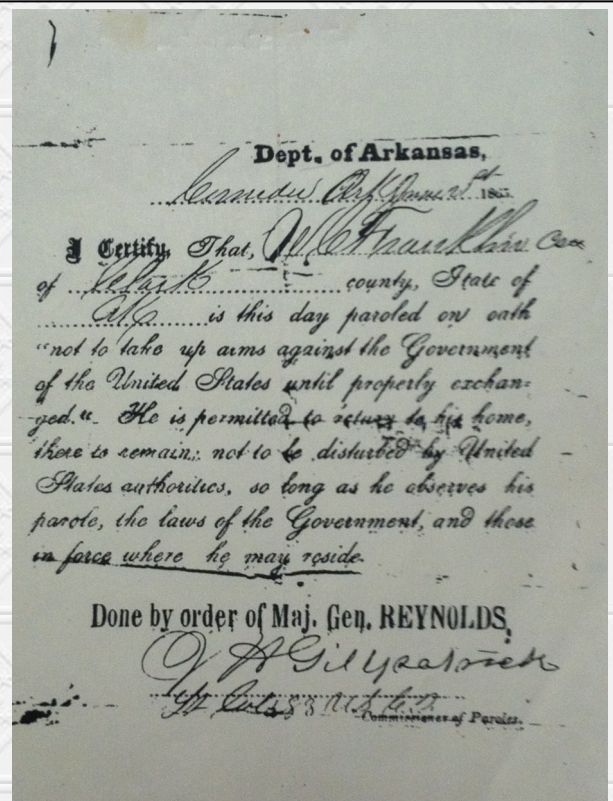 Dept. of Arkansas,
Camden Ark June 1865.
I Certify, That, W C Franklin
of Clark county, State of
Ark is this day paroled on oath
"not to take up arms against the Government
of the United States until properly exchan=
ged." He is permitted to return to his home,
there to remain; not to be disturbed by United
States authorities, so long as he observes his
parole, the laws of the Government, and those
in force where he may reside.
Done by order of Maj. Gen. REYNOLDS,
Gilpatrick
Lt Col 83 U S C
Commissioner of Paroles.